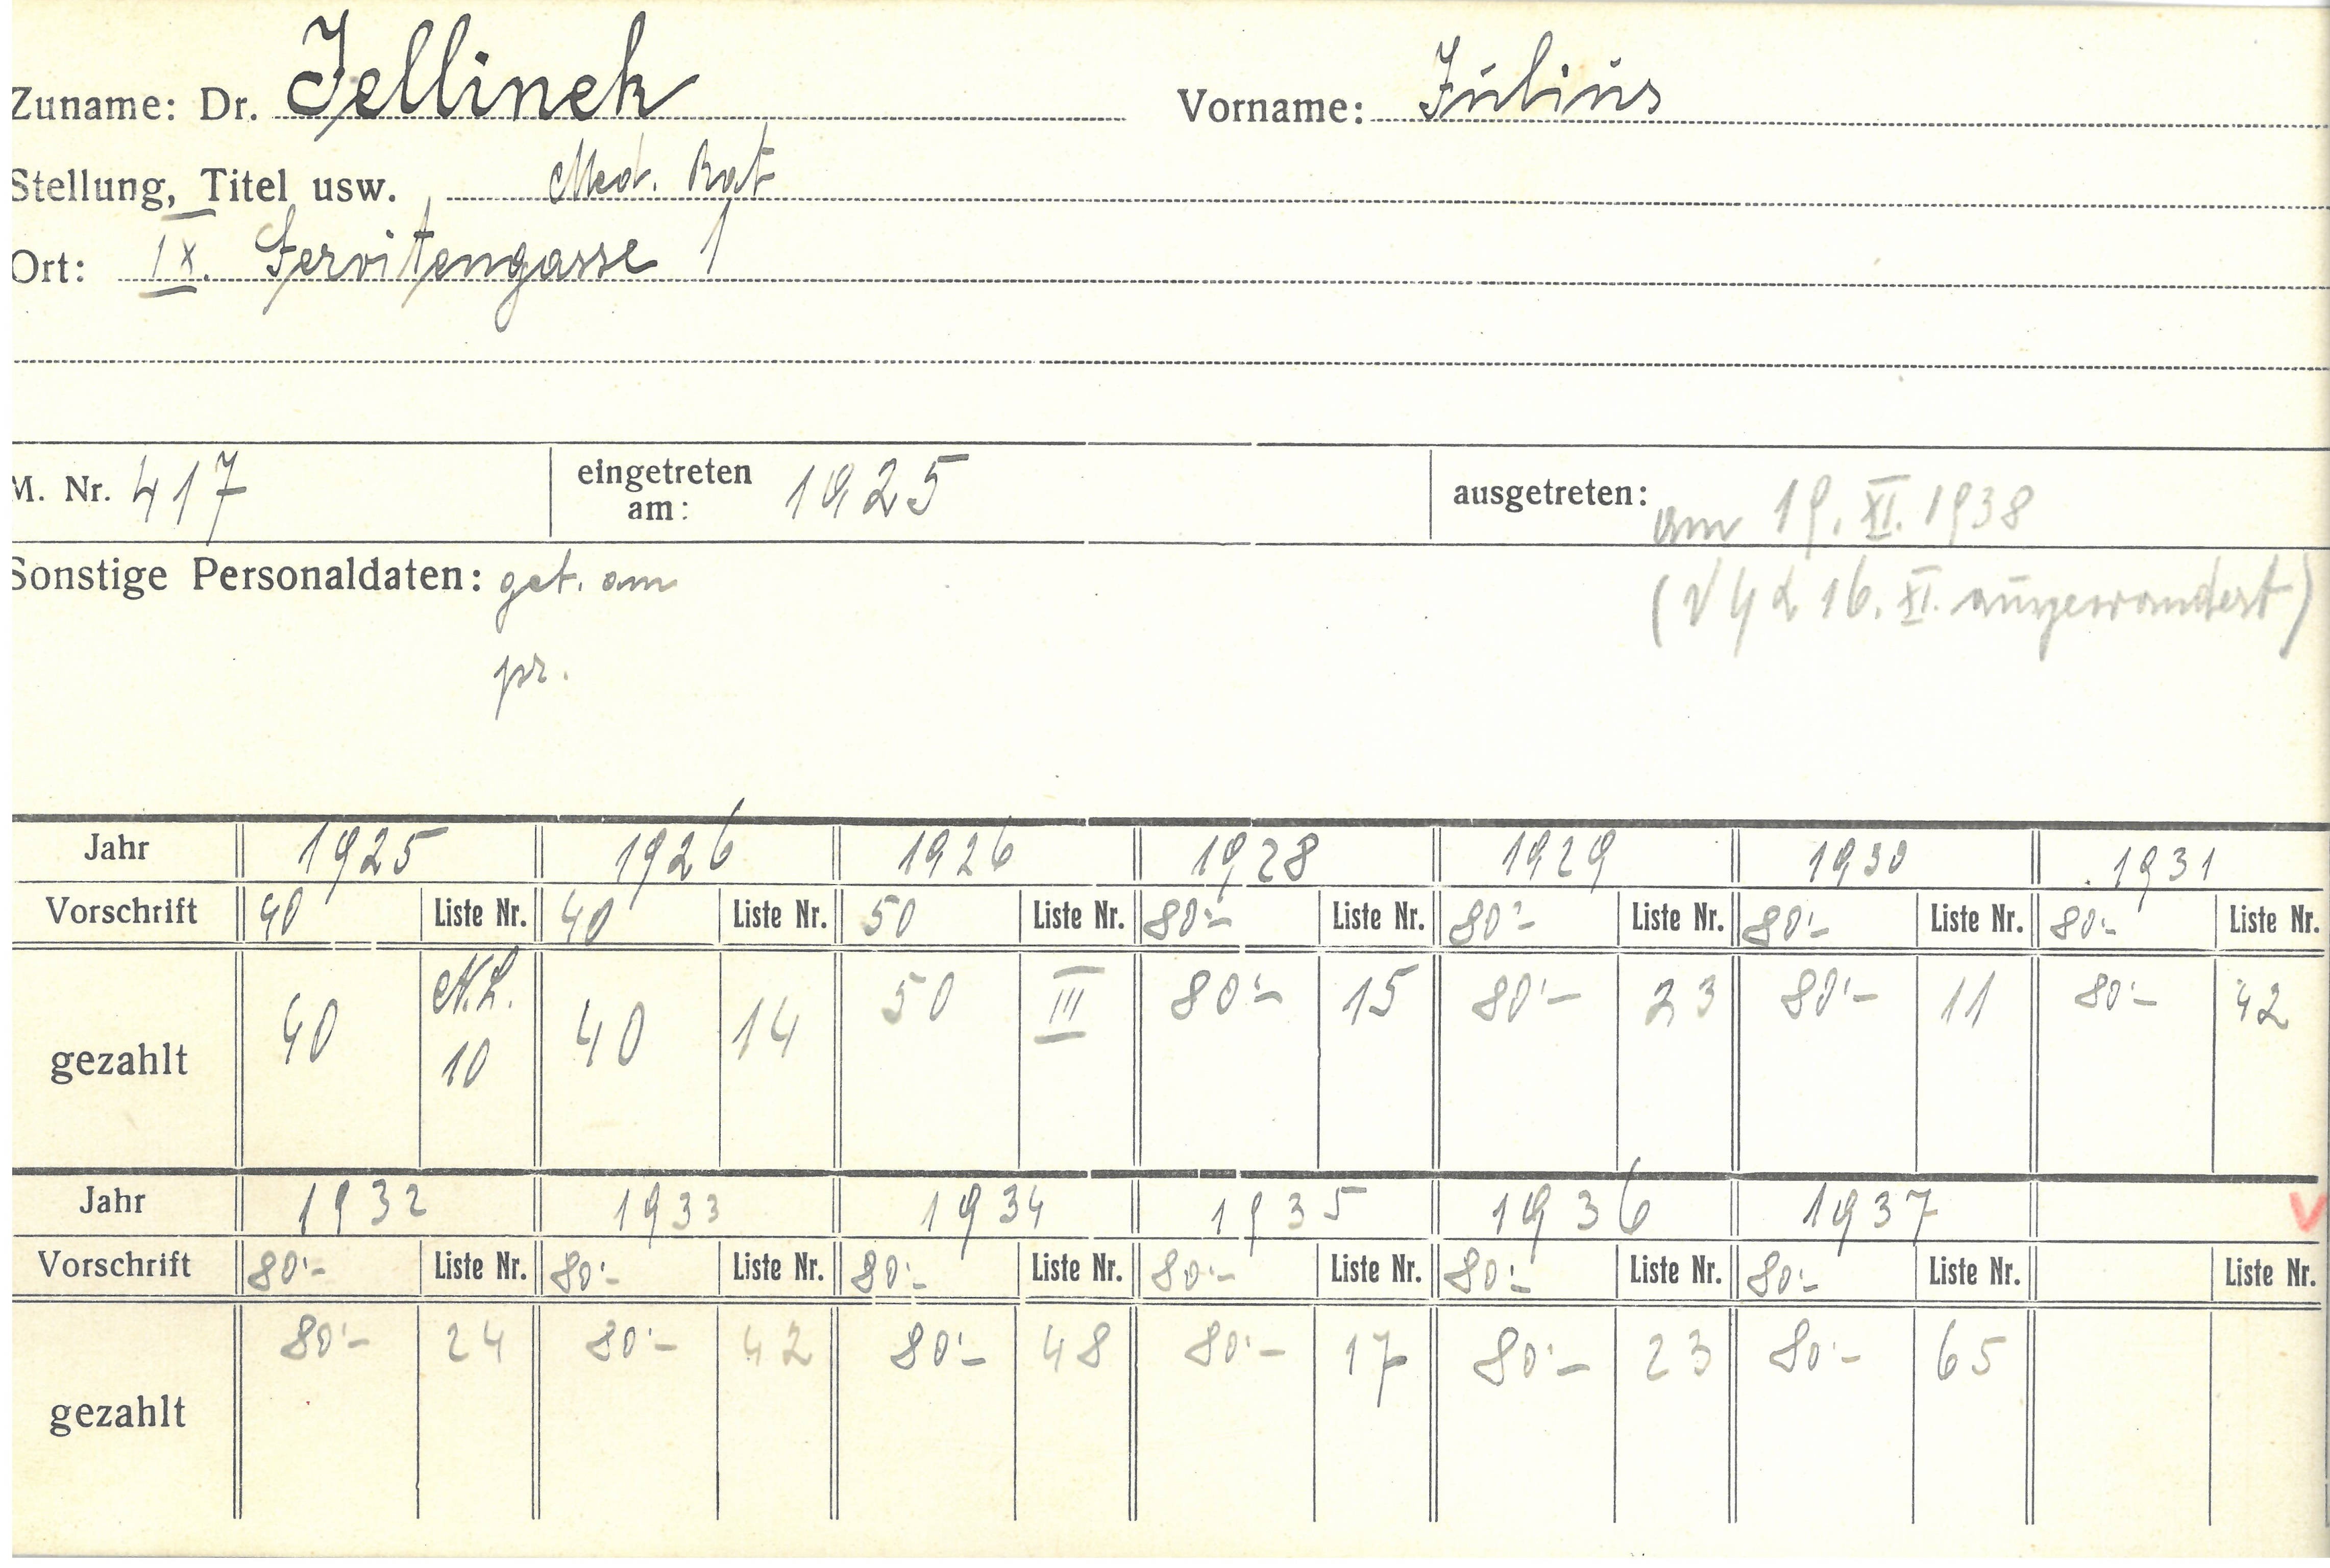 Zuname: Dr. Jellinek Vorname: Julius
Stellung, Titel usw. Med. Rat
Ort: IX. Servitengasse 1
M. Nr. 417 eingetreten am: 1925 ausgetreten: am 19. XI. 1938
Sonstige Personaldaten: get. am (16. XI. ausgewandert)
pr.
Jahr 1925 1926 1926 1928 1929 1930 1931
Vorschrift 40 Liste Nr. 40 Liste Nr. 50 Liste Nr. 80'- Liste Nr. 80'- Liste Nr. 80'- Liste Nr. 80'- Liste Nr.
gezahlt 40 N.L. 10 40 14 50 III 80'- 15 80'- 23 80'- 11 80'- 42
Jahr 1932 1933 1934 1935 1936 1937 V
Vorschrift 80'- Liste Nr. 80'- Liste Nr. 80'- Liste Nr. 80'- Liste Nr. 80'- Liste Nr. 80'- Liste Nr. Liste Nr.
gezahlt 80'- 24 80'- 42 80'- 48 80'- 17 80'- 23 80'- 65